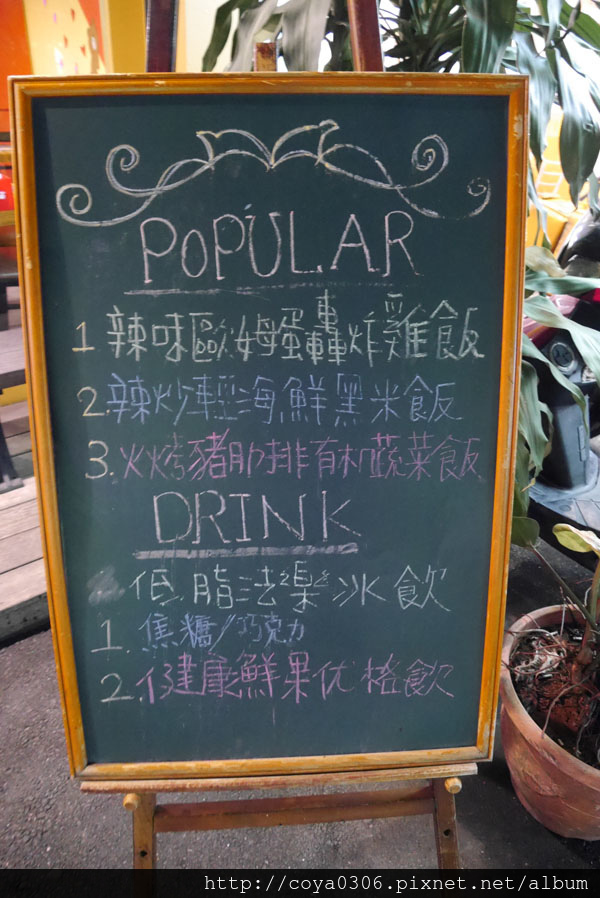 POPULAR
1 辣味歐姆蛋轟炸雞飯
2.辣炒輕海鮮黑米飯
3.火烤豬肋排有机蔬菜飯
DRINK
低脂法樂冰飲
1. 焦糖/巧克力
2.健康鮮果优格飲
http://coya0306.pixnet.net/album